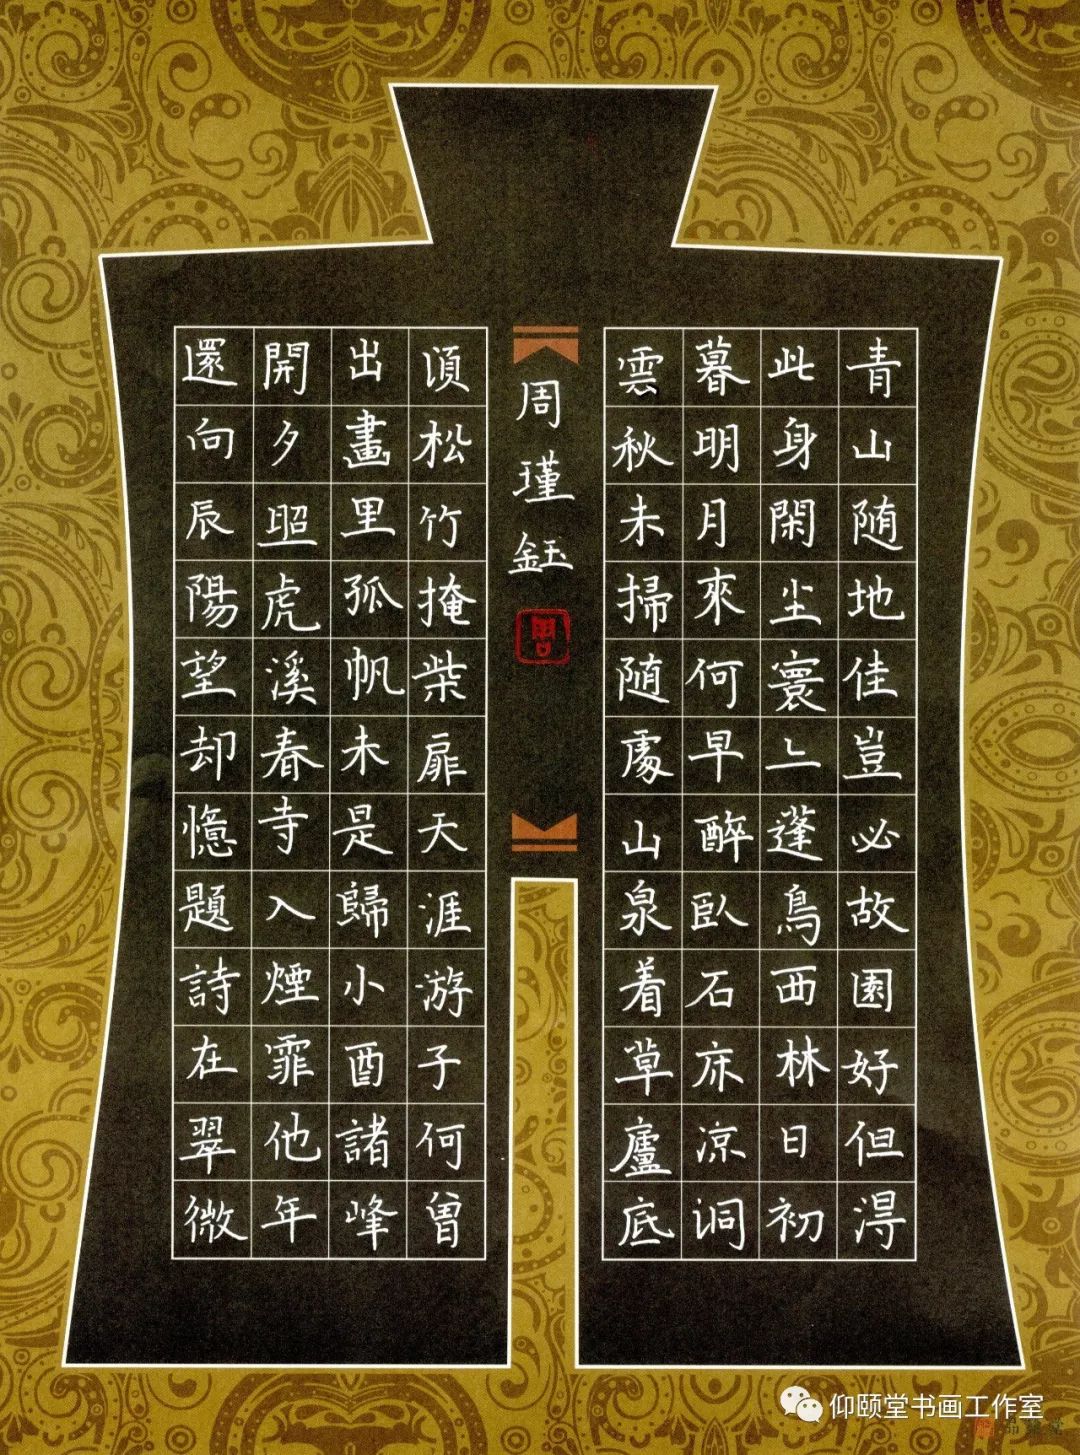 青山随地佳豈必故園好但淂
此身閑尘寰蓬鳥西林日初
暮明月來何早醉臥石床凉洞
雲秋未掃随處山泉着草廬底
周瑾鈺
須松竹掩柴扉天涯游子何曾
出畫里孤帆未是歸小酉諸峰
開夕照虎溪春寺入煙霏他年
還向辰陽望却憶題詩在翠微
仰颐堂书画工作室